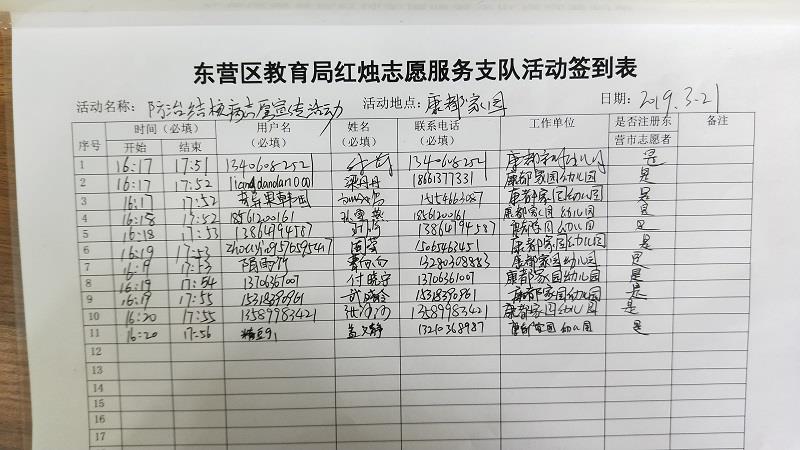 东营区教育局红烛志愿服务支队活动签到表
活动名称：防治结核病志愿宣传活动 活动地点：康都家园 日期：2019.3.21
序号 时间（必填） 用户名（必填） 姓名（必填） 联系电话（必填） 工作单位 是否注册东营市志愿者 备注
开始 结束
1 16:17 17:51 是
2 16:17 17:52 liangdandan1000 梁丹丹 18661377331 康都家园幼儿园 是
3 16:17 17:52 15154663087 康都家园幼儿园 是
4 16:18 17:52 18561200161 18561200161 康都家园幼儿园 是
5 16:18 17:53 13864794587 13864794587 康都家园幼儿园 是
6 16:19 17:53 15065463451 康都家园幼儿园 是
7 16:19 17:53 13280308883 康都家园幼儿园 是
8 16:19 17:54 13706361007 付晓宁 13706361007 康都家园幼儿园 是
9 16:19 17:55 15318390961 15318390961 康都家园幼儿园 是
10 16:20 17:55 13589983421 13589983421 康都家园幼儿园 是
11 16:20 17:56 糖豆 孟文静 13210368987 康都家园幼儿园 是
12
13
14
15
16
17